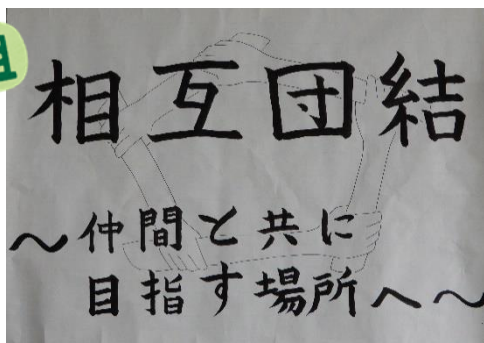 組
相互団結
～仲間と共に
目指す場所へ～